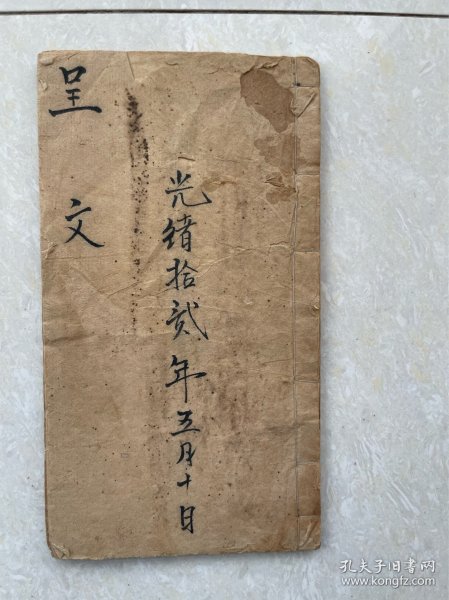 光绪拾貳年五月十日
呈文
孔夫子旧书网
www.kongfz.com